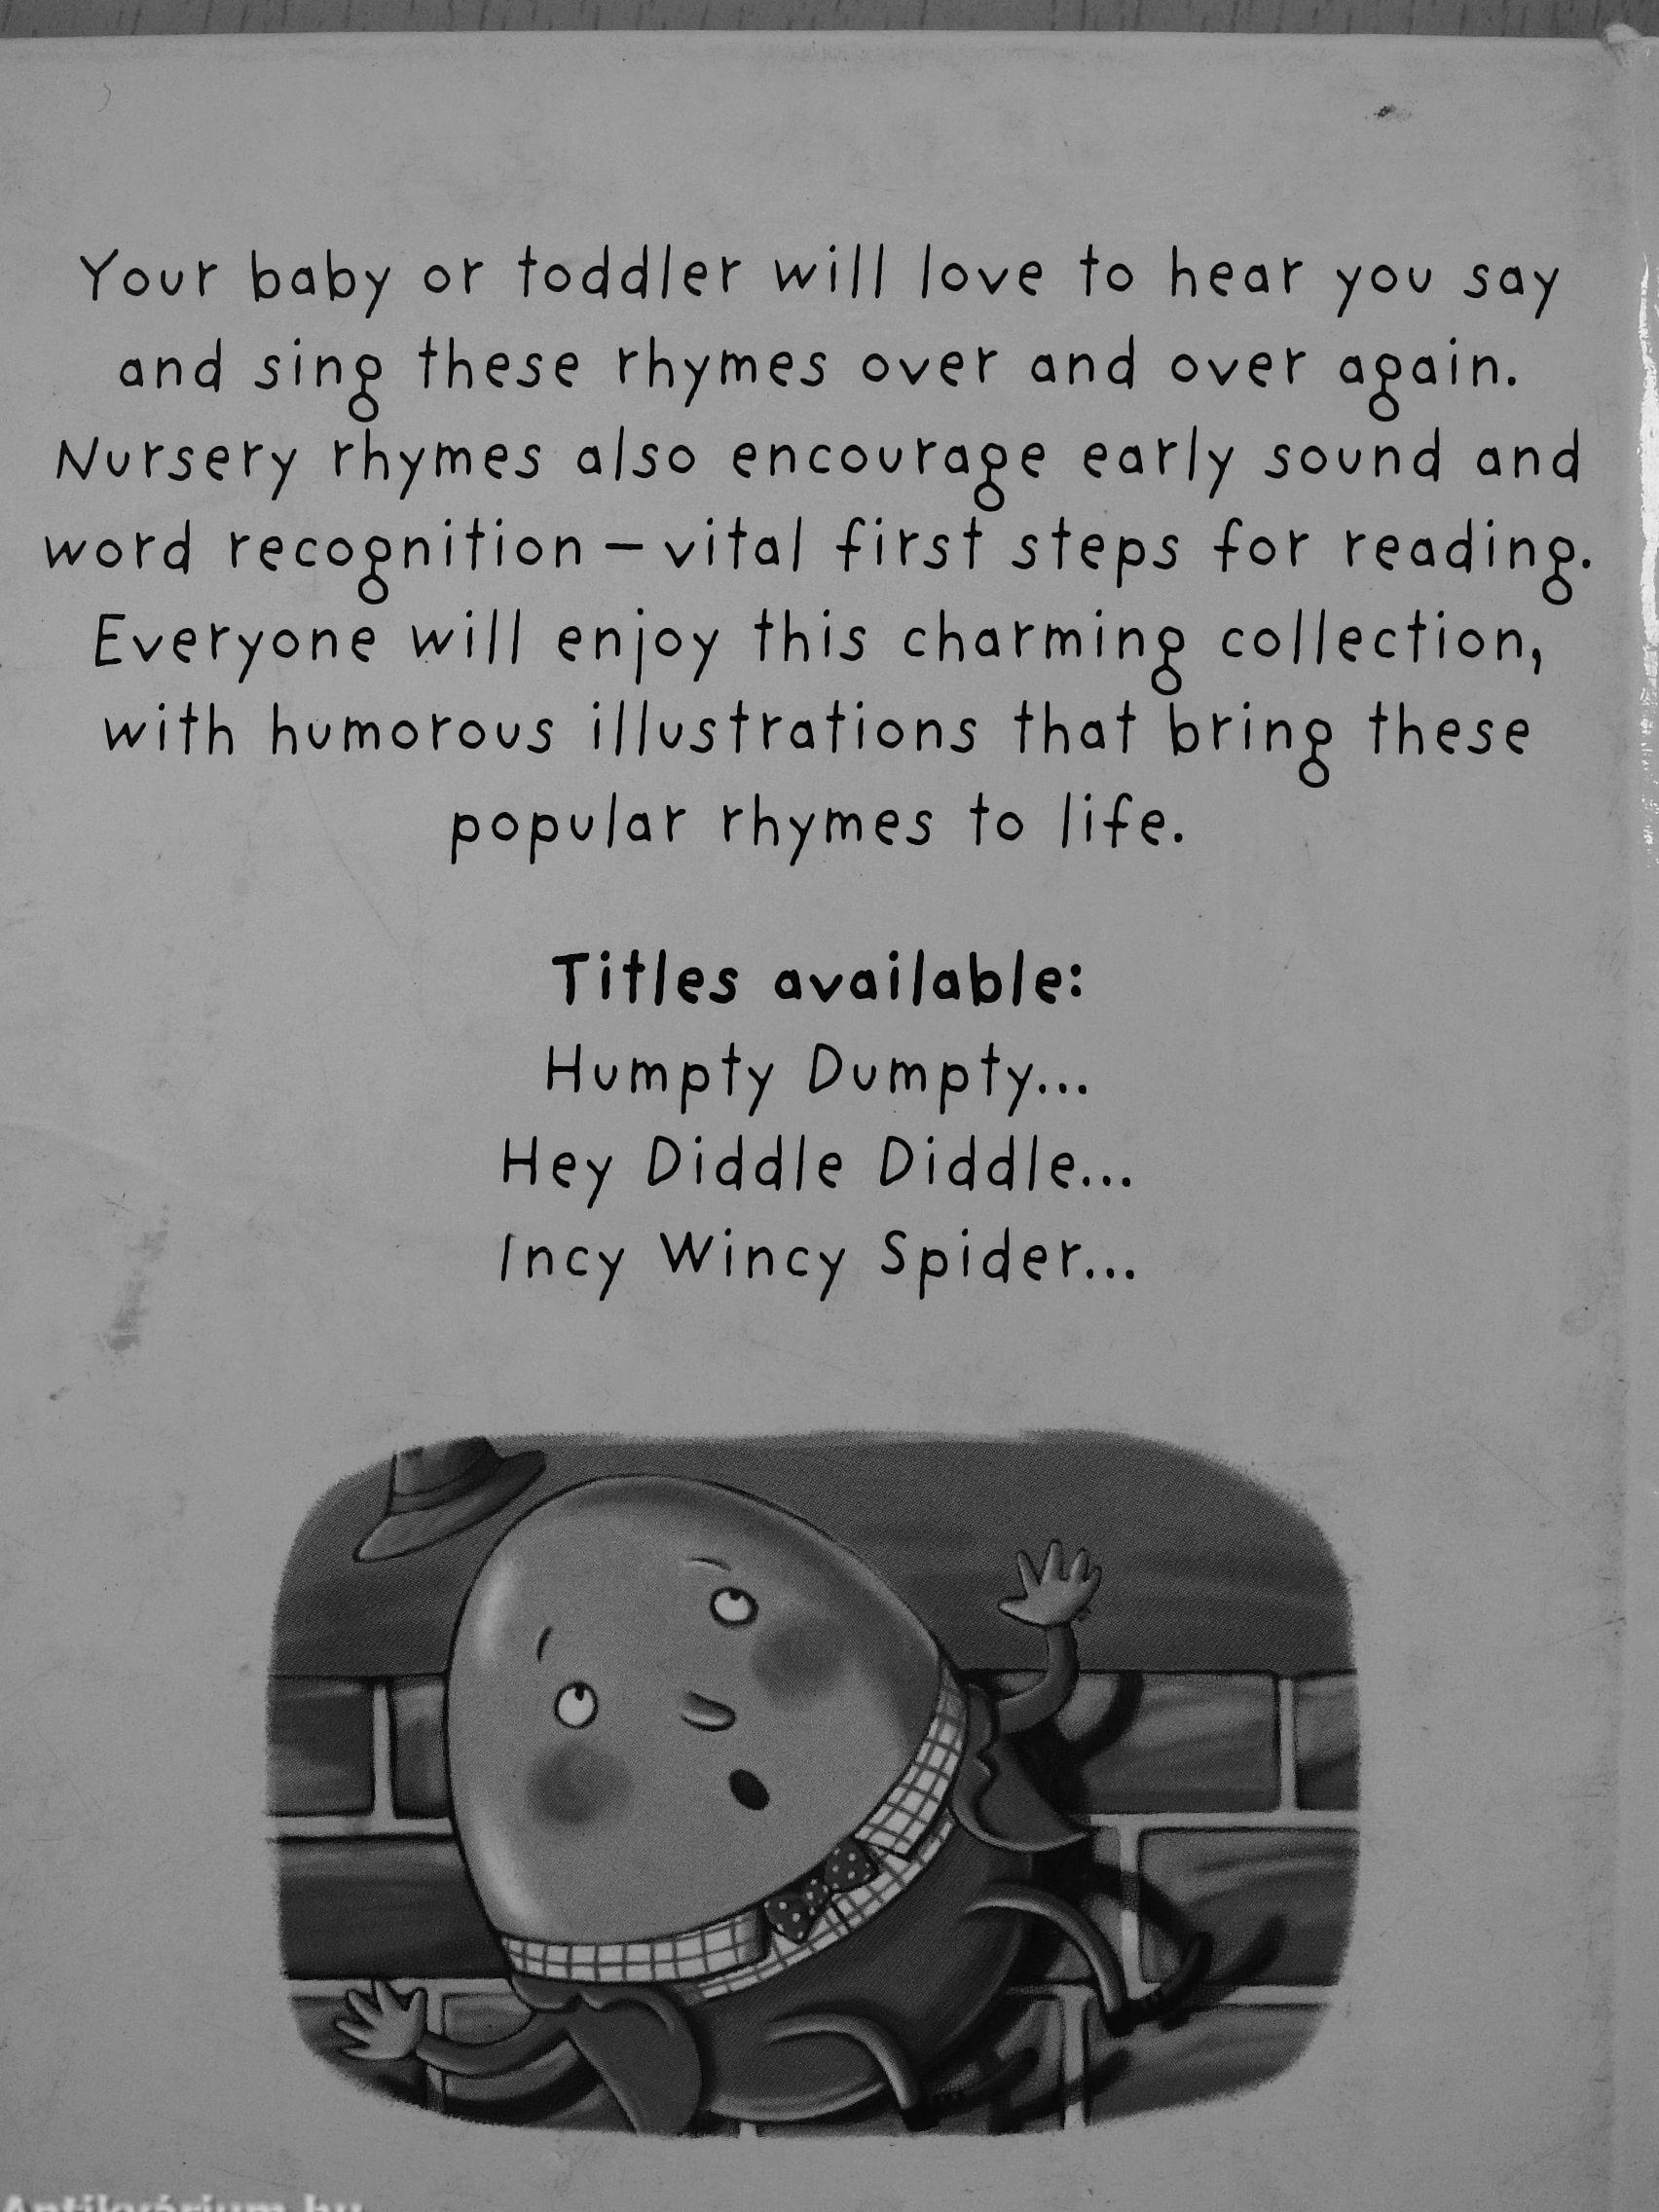 Your baby or toddler will love to hear you say
and sing these rhymes over and over again.
Nursery rhymes also encourage early sound and
word recognition – vital first steps for reading.
Everyone will enjoy this charming collection,
with humorous illustrations that bring these
popular rhymes to life.
Titles available:
Humpty Dumpty...
Hey Diddle Diddle...
Incy Wincy Spider...
Antikvárium.hu